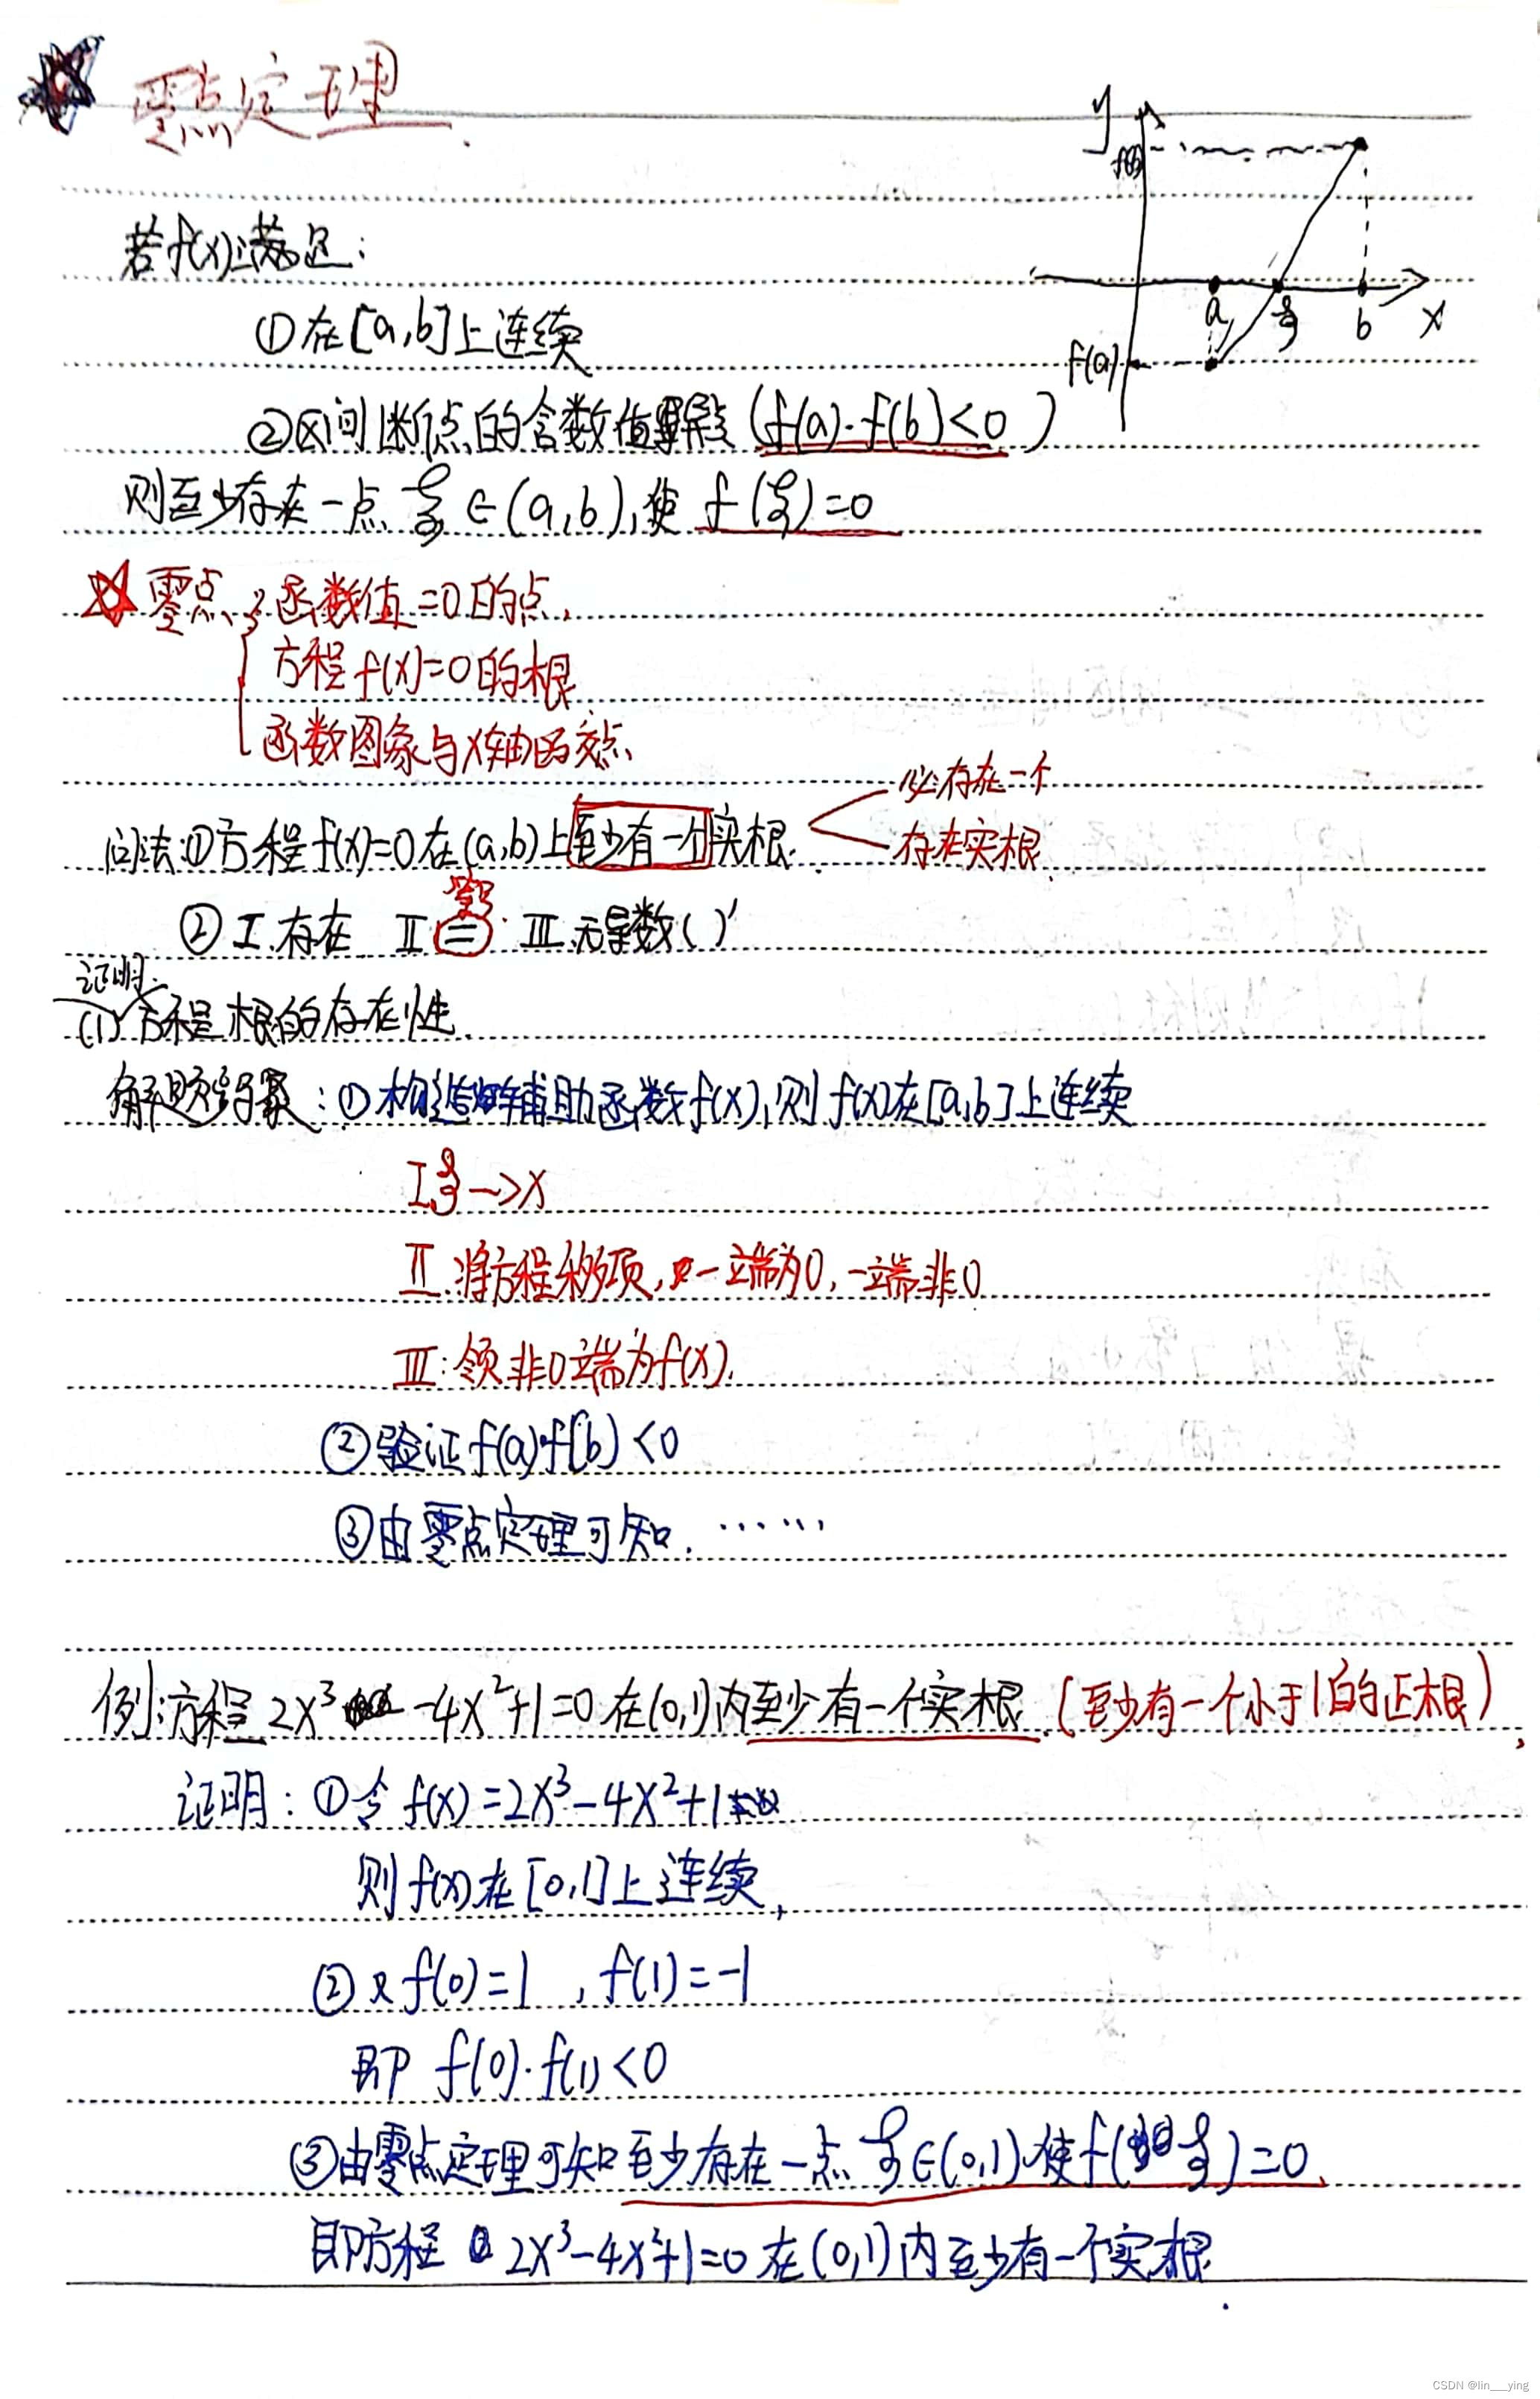 零点定理.
y
f(b)
若f(x)满足:
a ξ b x
①在[a,b]上连续
f(a)
②区间断点的含数值异号(f(a)·f(b)<0)
则至少存在一点ξ∈(a,b),使f(ξ)=0
零点、函数值=0的点.
方程f(x)=0的根
函数图象与x轴的交点.
必存在一个
问法:①方程f(x)=0在(a,b)上至少有一个实根.
存在实根.
②I.存在 Ⅱ = Ⅲ.无导数( )'
证明:
(1)方程根的存在性.
解题步骤:①构造辅助函数f(x),则f(x)在[a,b]上连续
I.ξ→x
Ⅱ.将方程移项,一端为0,一端非0
Ⅲ:领非0端为f(x).
②验证f(a)·f(b)<0
③由零点定理可知.……
例:方程2x³-4x²+1=0在(0,1)内至少有一个实根.(至少有一个小于1的正根),
证明:①令f(x)=2x³-4x²+1
则f(x)在[0,1]上连续,
②又f(0)=1,f(1)=-1
即f(0)·f(1)<0
③由零点定理可知至少存在一点ξ∈(0,1).使f(ξ)=0.
即方程2x³-4x²+1=0在(0,1)内至少有一个实根.
CSDN @lin___ying